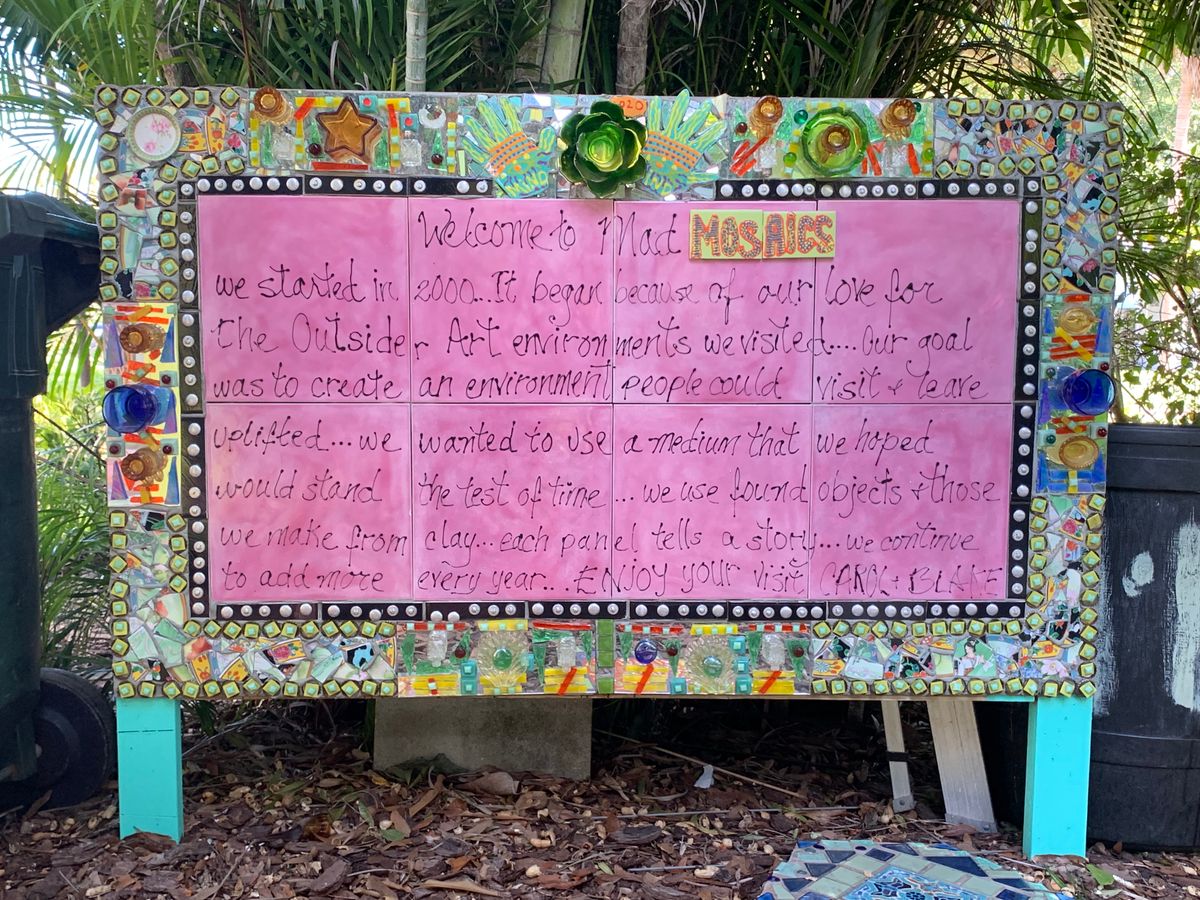 Welcome to Mad MOSAICS
we started in 2000...It began because of our love for
the Outsider Art environments we visited.... Our goal
was to create an environment people could visit + leave
uplifted...we wanted to use a medium that we hoped
would stand the test of time ...we use found objects + those
we make from clay...each panel tells a story...we continue
to add more every year...ENJOY your visit CAROL + BLAKE